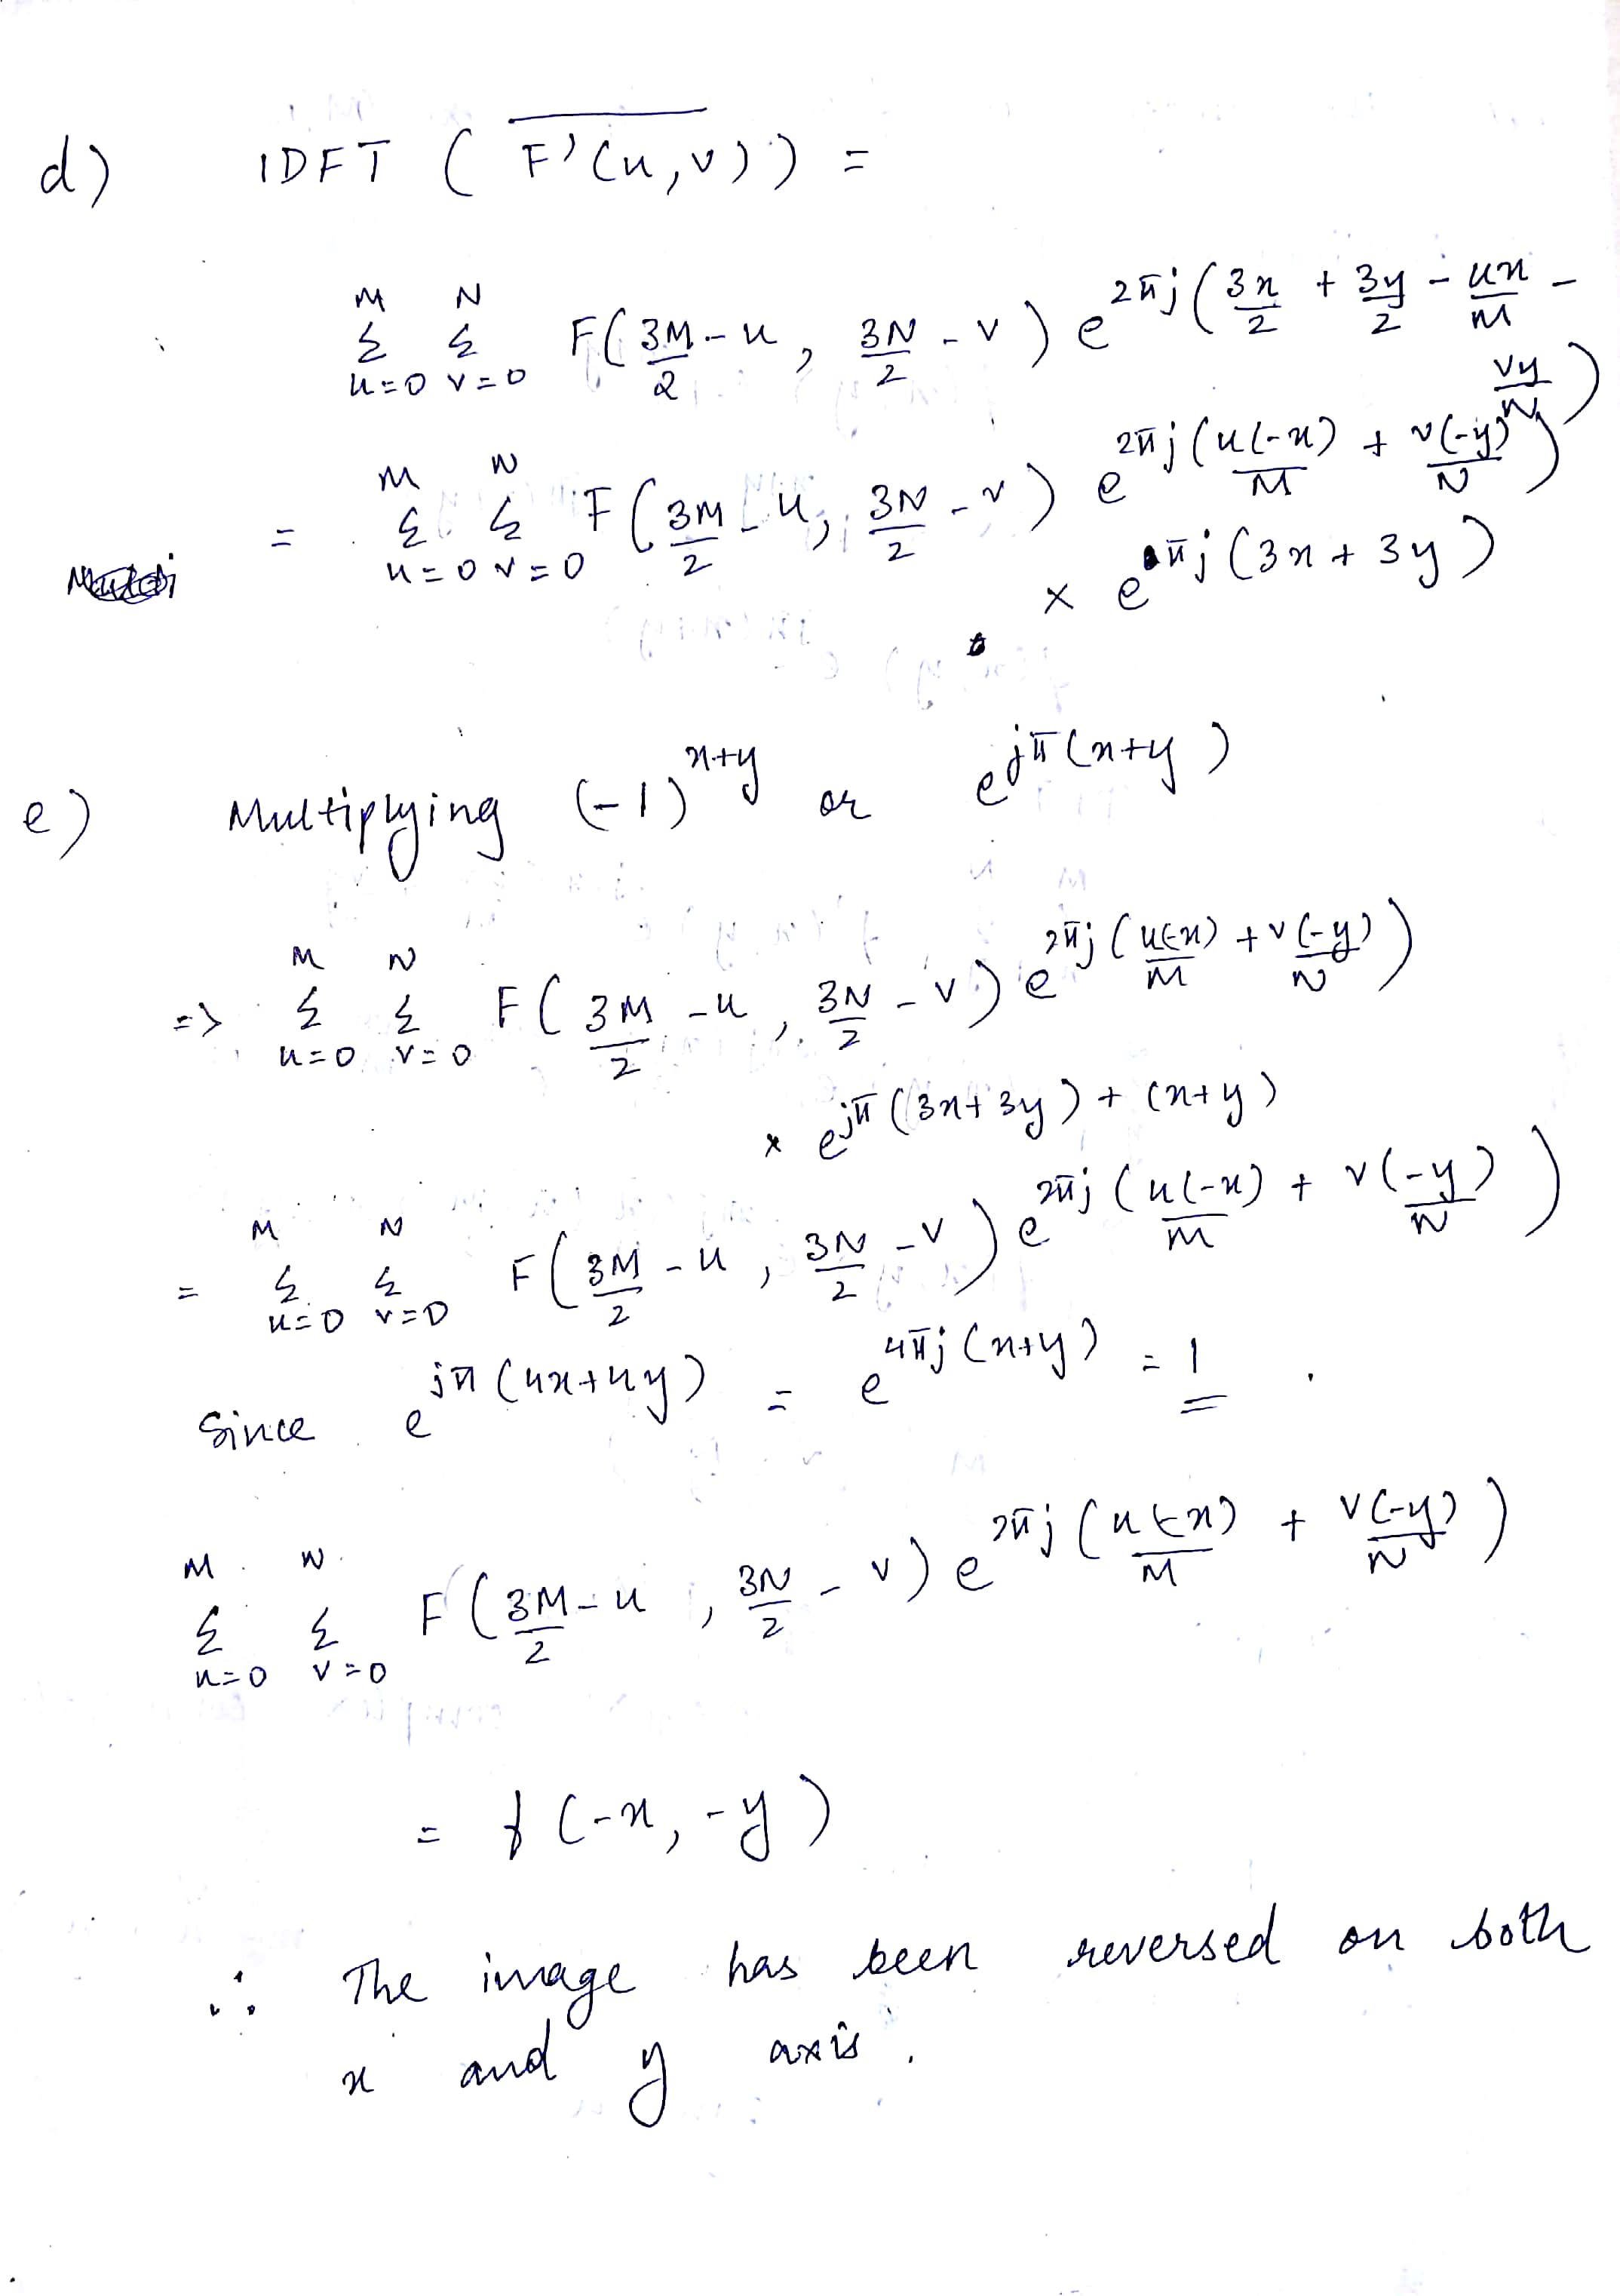 d) IDFT ( \overline{F'(u,v)} ) =
\sum_{u=0}^{M} \sum_{v=0}^{N} F( \frac{3M}{2} - u, \frac{3N}{2} - v ) e^{2πj ( \frac{3x}{2} + \frac{3y}{2} - \frac{ux}{M} - \frac{vy}{N} )}
= \sum_{u=0}^{M} \sum_{v=0}^{N} F( \frac{3M}{2} - u, \frac{3N}{2} - v ) e^{2πj ( \frac{u(-x)}{M} + \frac{v(-y)}{N} )}
× e^{πj (3x + 3y)}
e) Multiplying (-1)^{x+y} or e^{jπ(x+y)}
=> \sum_{u=0}^{M} \sum_{v=0}^{N} F( \frac{3M}{2} - u, \frac{3N}{2} - v ) e^{2πj ( \frac{u(-x)}{M} + \frac{v(-y)}{N} )}
× e^{jπ (3x + 3y) + (x+y)}
= \sum_{u=0}^{M} \sum_{v=0}^{N} F( \frac{3M}{2} - u, \frac{3N}{2} - v ) e^{2πj ( \frac{u(-x)}{M} + \frac{v(-y)}{N} )}
Since e^{jπ (4x+4y)} = e^{4πj (x+y)} = 1 .
\sum_{u=0}^{M} \sum_{v=0}^{N} F( \frac{3M}{2} - u, \frac{3N}{2} - v ) e^{2πj ( \frac{u(-x)}{M} + \frac{v(-y)}{N} )}
= f (-x, -y)
∴ The image has been reversed on both
x and y axis .